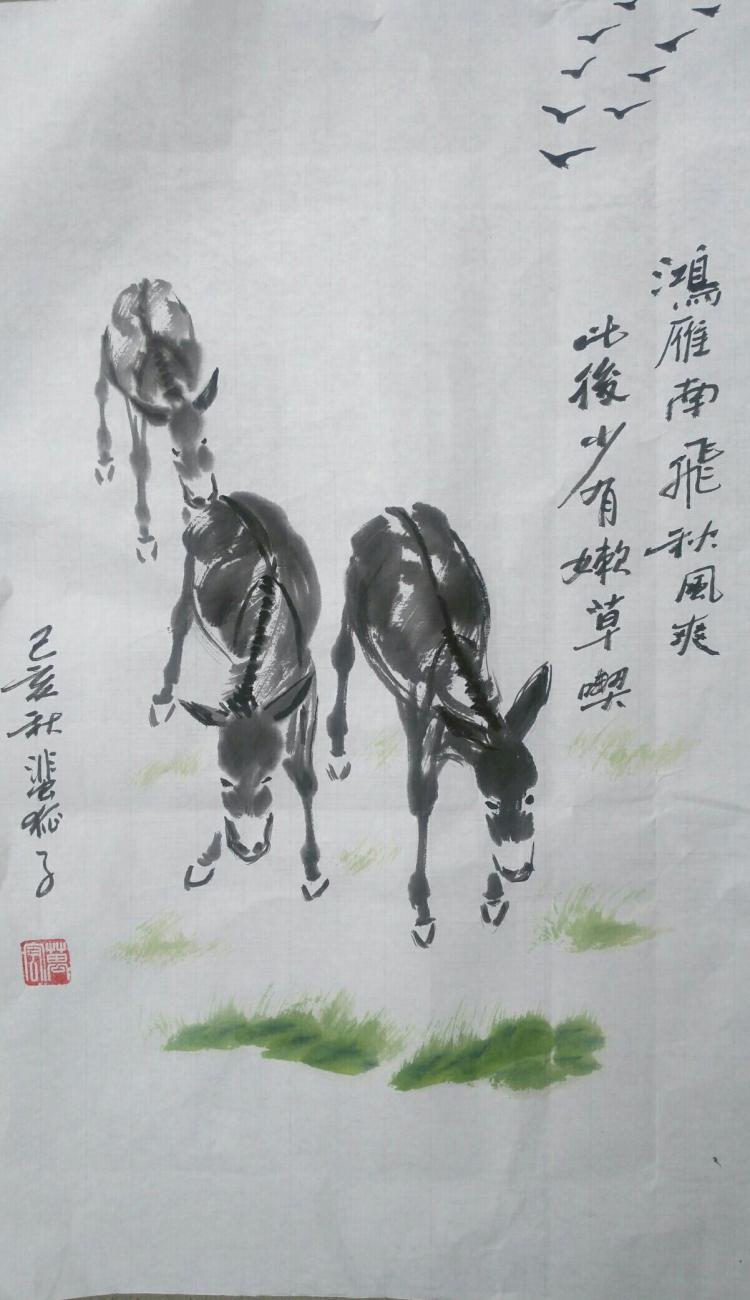 鴻雁南飛秋風爽
此後少有嫩草喫
己亥秋蜚狐子